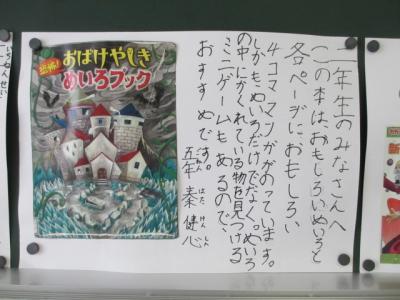 恐怖!
おばけやしき
めいろブック
二年生のみなさんへ
この本は、おもしろいめいろと
各ページにおもしろい
4コママンガがのっています。
しかも、めいろだけでなく。めいろ
の中にかくれている物を見つける
ミニゲームもあるので、
おすすめです。
五年 秦 健心
ごねん はた けんしん